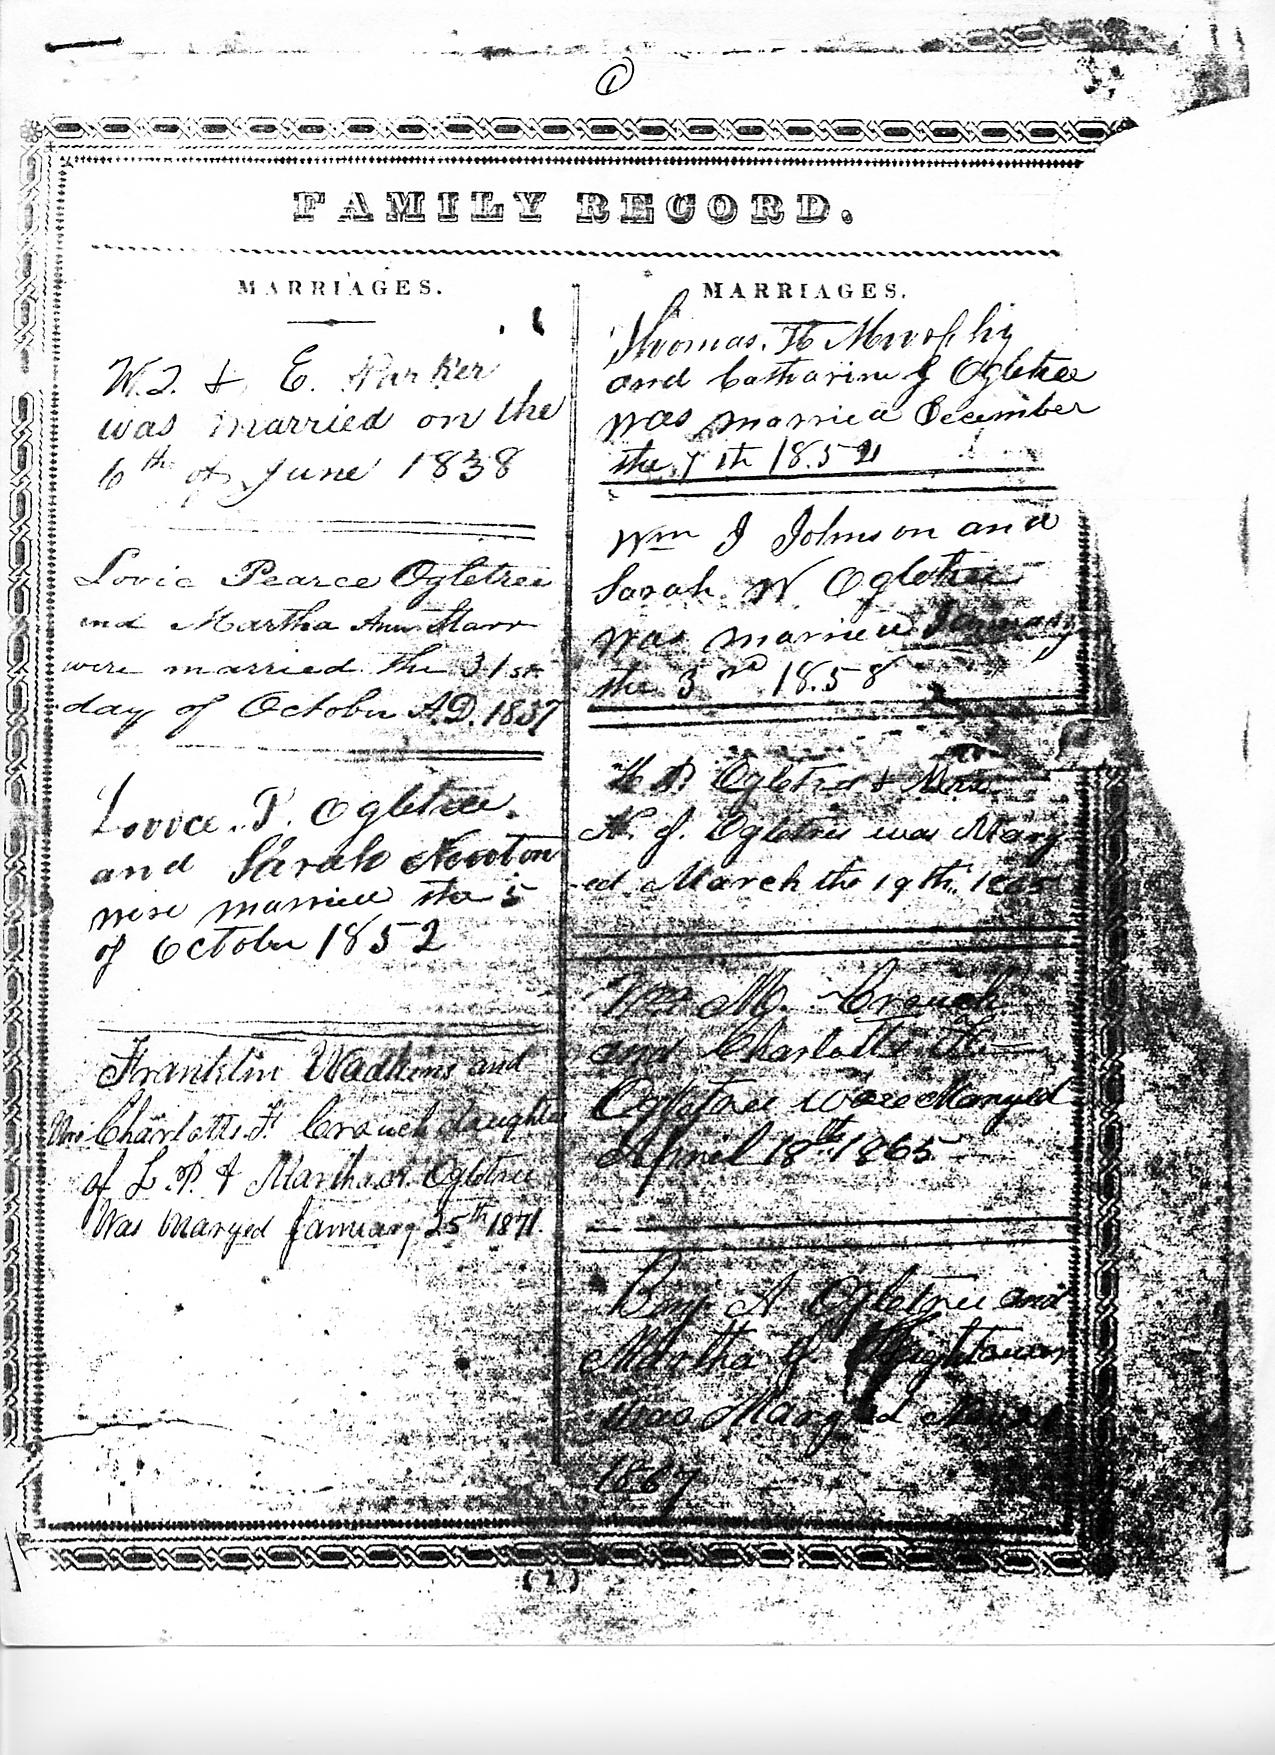 1
FAMILY RECORD.
MARRIAGES.
W.J. & E. Parker
was married on the
6th of June 1838
Lovic Pearce Ogletree
and Martha Ann Starr
were married the 31st
day of October A.D. 1837
Lovice. P. Ogletree.
and Sarah Newton
were married the 5
of October 1852
Franklin Wadkins and
Mrs Charlotte F. Crouch daughter
of L. P. & Martha A. Ogletree
Was Maryed January 25th 1871
MARRIAGES.
Thomas. H Murphy
and Catharine J Ogletree
was married December
the 7th 1852
Wm J Johnson and
Sarah W Ogletree
was married January
the 3rd 1858
H P. Ogletree & Mrs
N. J. Ogletree was Mary
ed March the 19th. 1865
M. Crouch
and Charlotte F
Ogletree were Maryed
April 18th 1865
Benj A Ogletree and
Martha J Hightower
was Maryed
1867